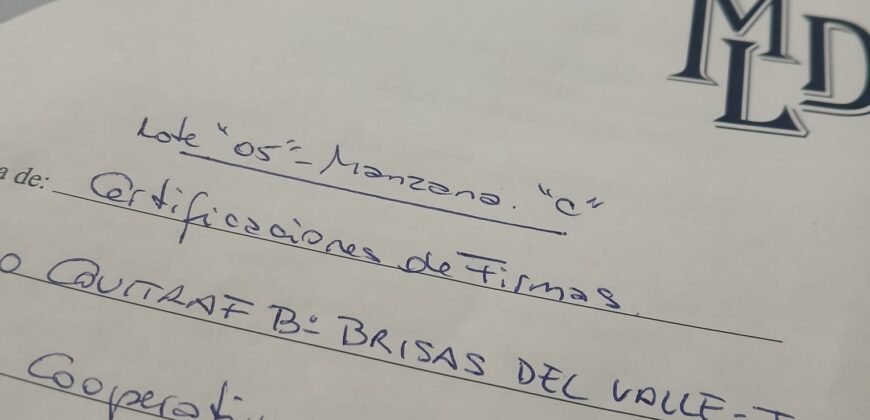 MLD
Lote "05" - Manzana. "C"
a de: Certificaciones de Firmas.
o COVITRAF Bº BRISAS DEL VALLE -
Cooperati